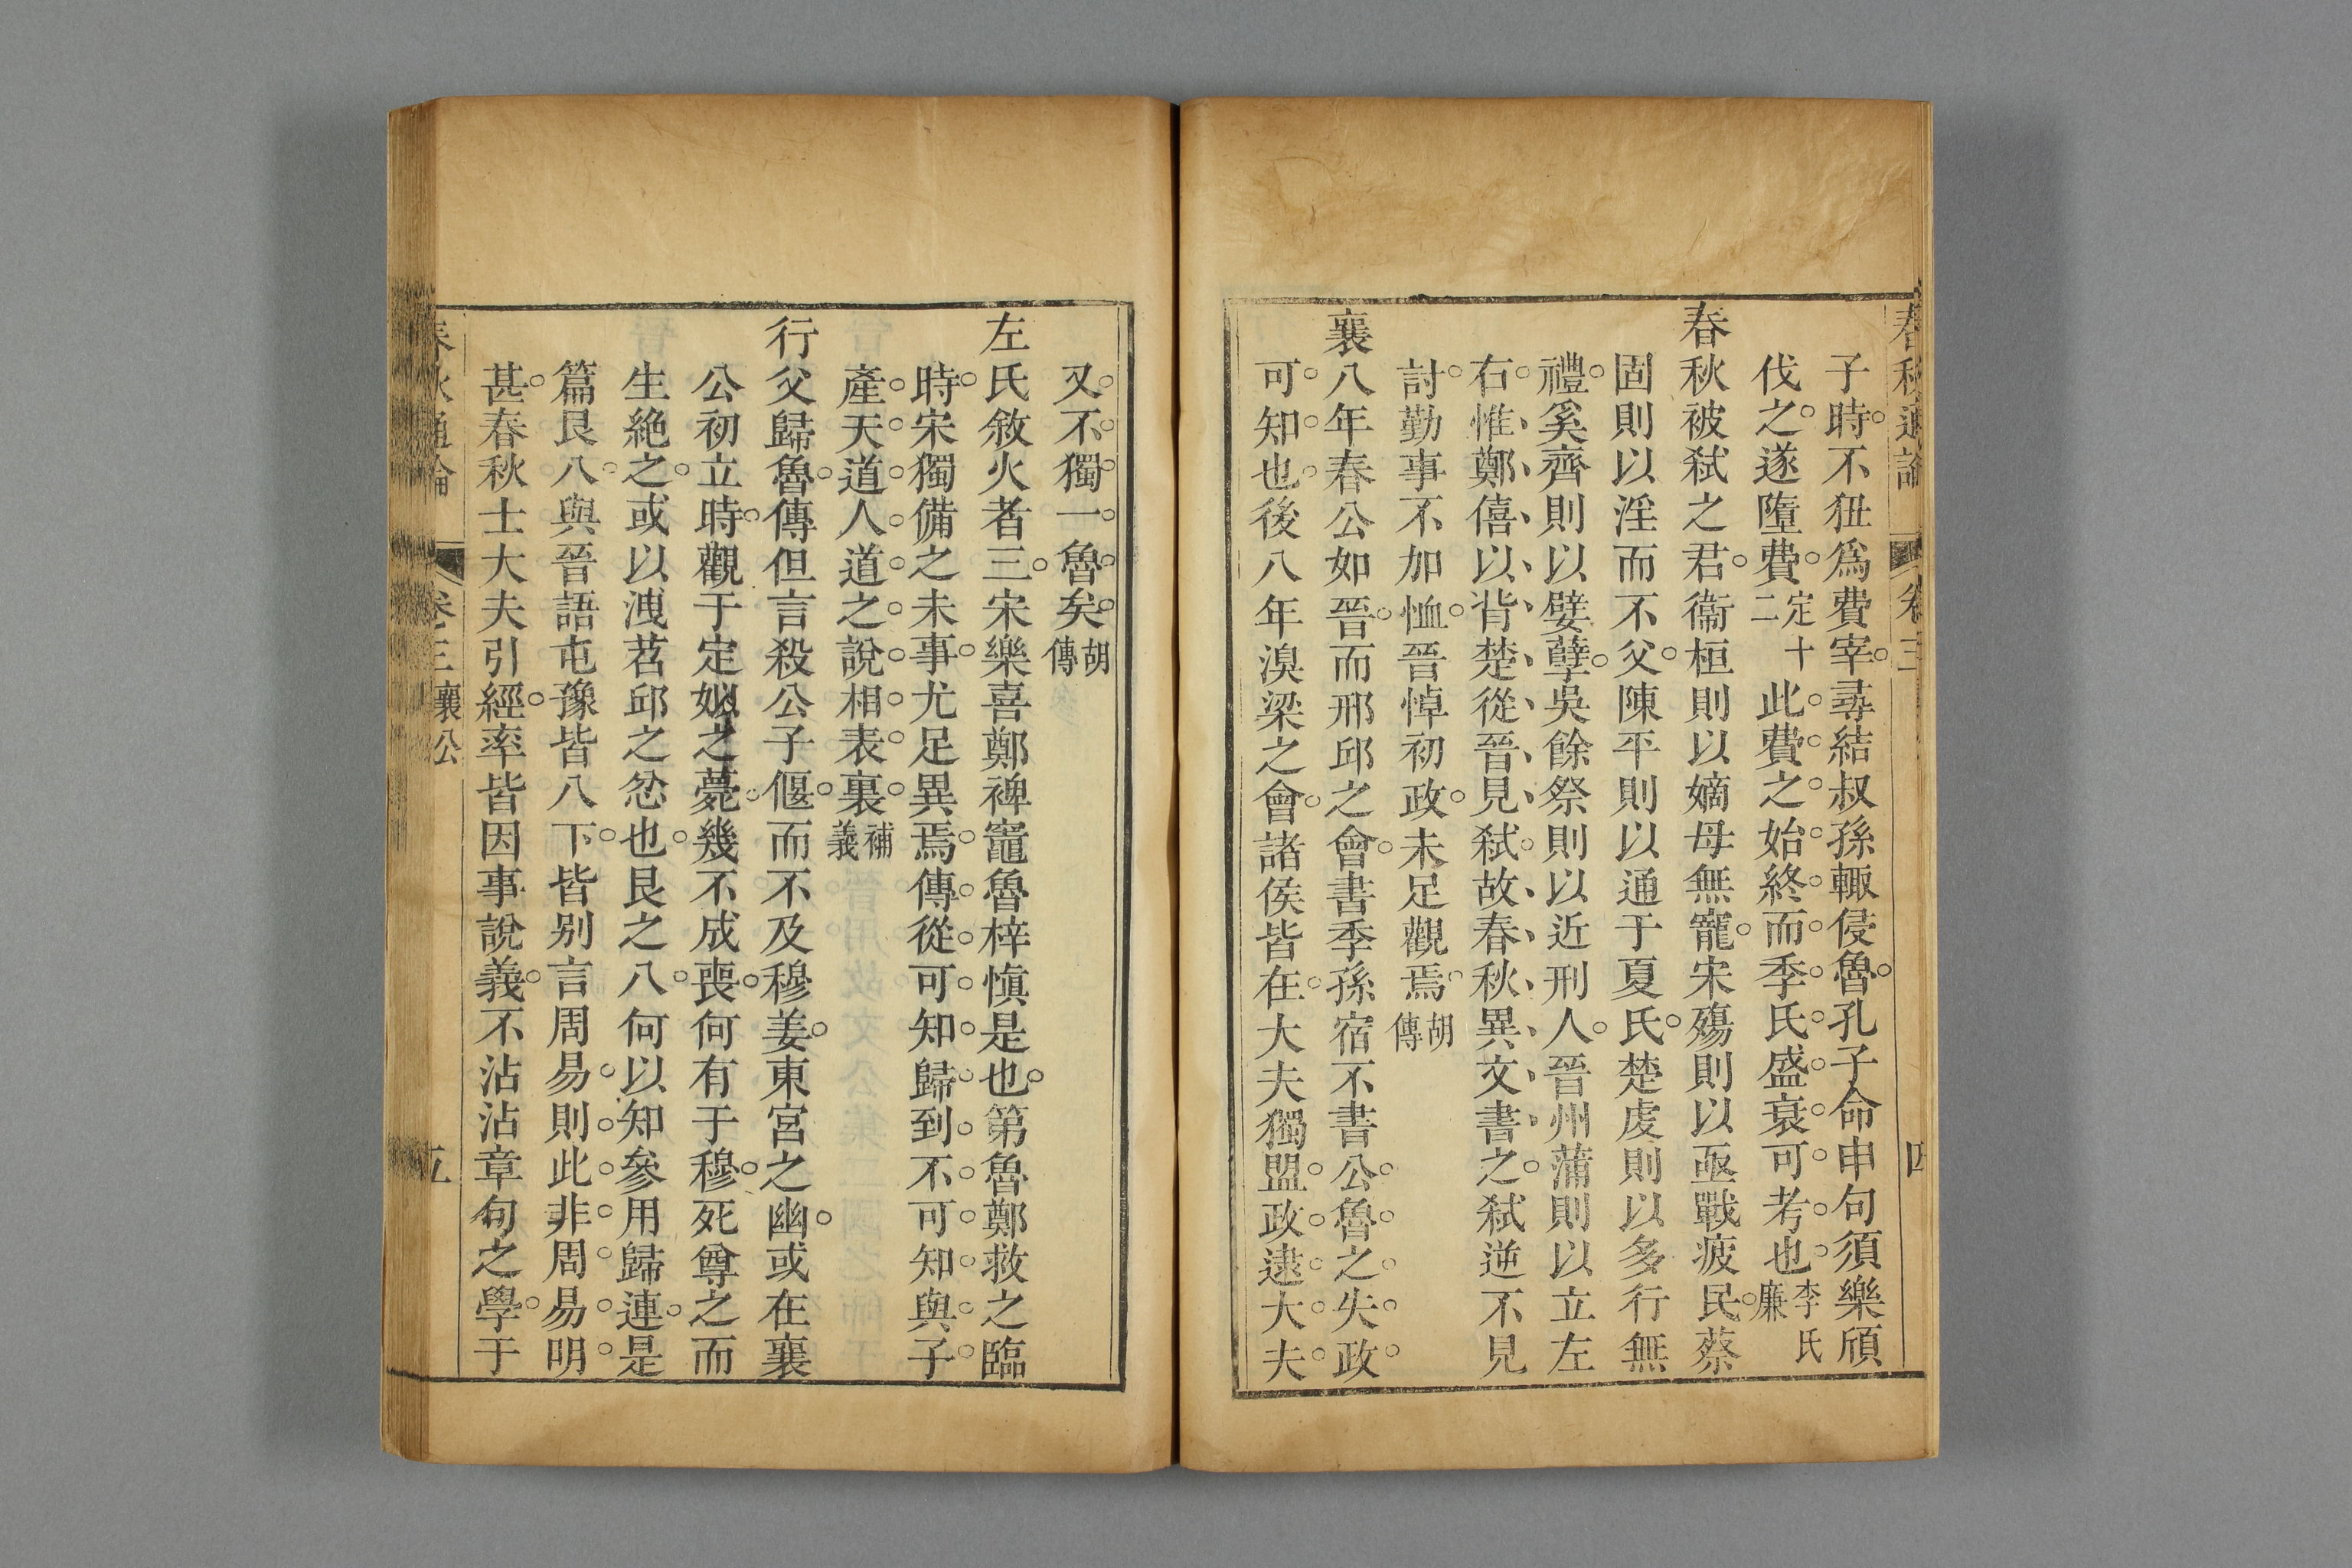 春秋通論 卷三 四
子時不狃爲費宰尋結叔孫輒侵魯孔子命申句須樂頎
伐之遂墮費定十二此費之始終而季氏盛衰可考也李氏廉
春秋被弑之君衞桓則以嫡母無寵宋殤則以亟戰疲民蔡
固則以淫而不父陳平則以通于夏氏楚虔則以多行無
禮奚齊則以嬖孽吳餘祭則以近刑人晉州蒲則以立左
右惟鄭僖以背楚從晉見弑故春秋異文書之弑逆不見
討勤事不加恤晉悼初政未足觀焉胡傳
襄八年春公如晉而邢邱之會書季孫宿不書公魯之失政
可知也後八年湨梁之會諸侯皆在大夫獨盟政逮大夫
又不獨一魯矣胡傳
左氏敘火者三宋樂喜鄭裨竈魯梓慎是也第魯鄭救之臨
時宋獨備之未事尤足異焉傳從可知歸到不可知與子
產天道人道之說相表裏補義
行父歸魯傳但言殺公子偃而不及穆姜東宮之幽或在襄
公初立時觀于定姒之薨幾不成喪何有于穆死尊之而
生絶之或以洩苕邱之忿也艮之八何以知參用歸連是
篇艮八與晉語屯豫皆八下皆别言周易則此非周易明
甚春秋士大夫引經率皆因事說義不沾沾章句之學于
春秋通論 卷三 襄公 五